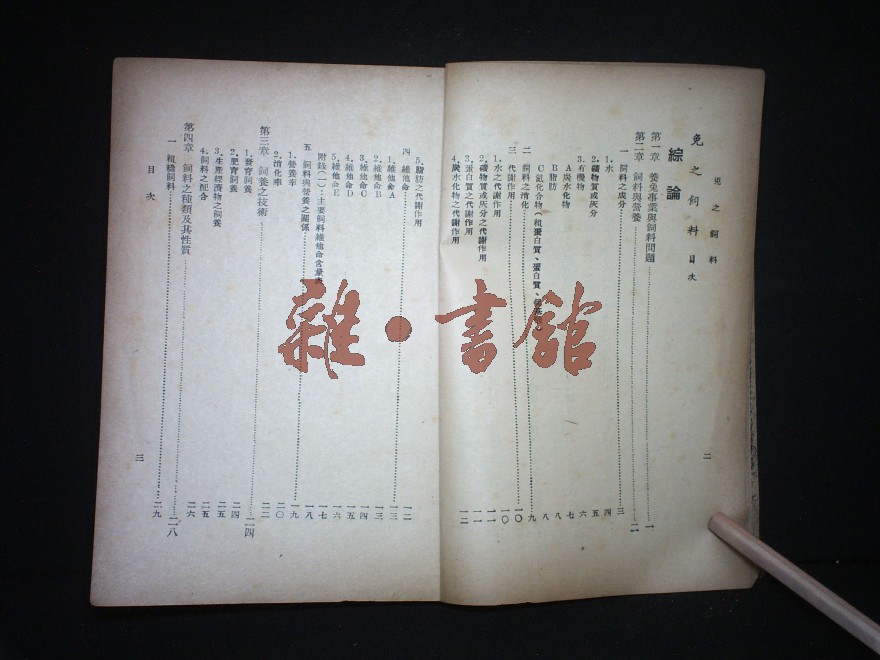 兎之飼料
兎之飼料目次
綜論
第一章 養兎事業與飼料問題………一
第二章 飼料與營養………二
一 飼料之成分………三
1.水 四
2.礦物質或灰分 五
3.有機物 六
A炭水化物 七
B脂肪 八
C氮化合物(粗蛋白質、蛋白質、 八
二 飼料之消化………九
三 代謝作用………一〇
1.水之代謝作用 一〇
2.礦物質或灰分之代謝作用 一一
3.蛋白質之代謝作用 一一
4.炭水化物之代謝作用 一二
二
5.脂肪之代謝作用 一二
四 維他命………一三
1.維他命A 一三
2.維他命B 一四
3.維他命C 一五
4.維他命D 一六
5.維他命E 一七
附錄(一):主要飼料維他命含量表 一八
五 飼料與營養之關係………一九
1.營養率 二〇
2.消化率 二二
第三章 飼養之技術………二四
1.發育飼養 二四
2.肥育飼養 二五
3.生產經濟物之飼養 二五
4.飼料之配合 二六
第四章 飼料之種類及其性質………二八
一 粗糙飼料………二九
目次
三
雜·書館